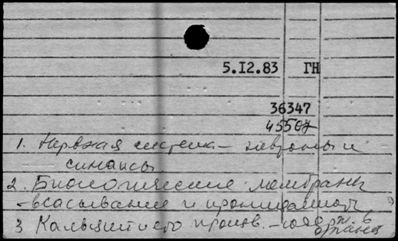 5.I2.83 ГН
36347
45567
1. Нервная система - нейроны и
синапсы
2. Биологические мембраны
- всасывание и проницаемость
3 Кальций и его произв. - содерж. в
органах